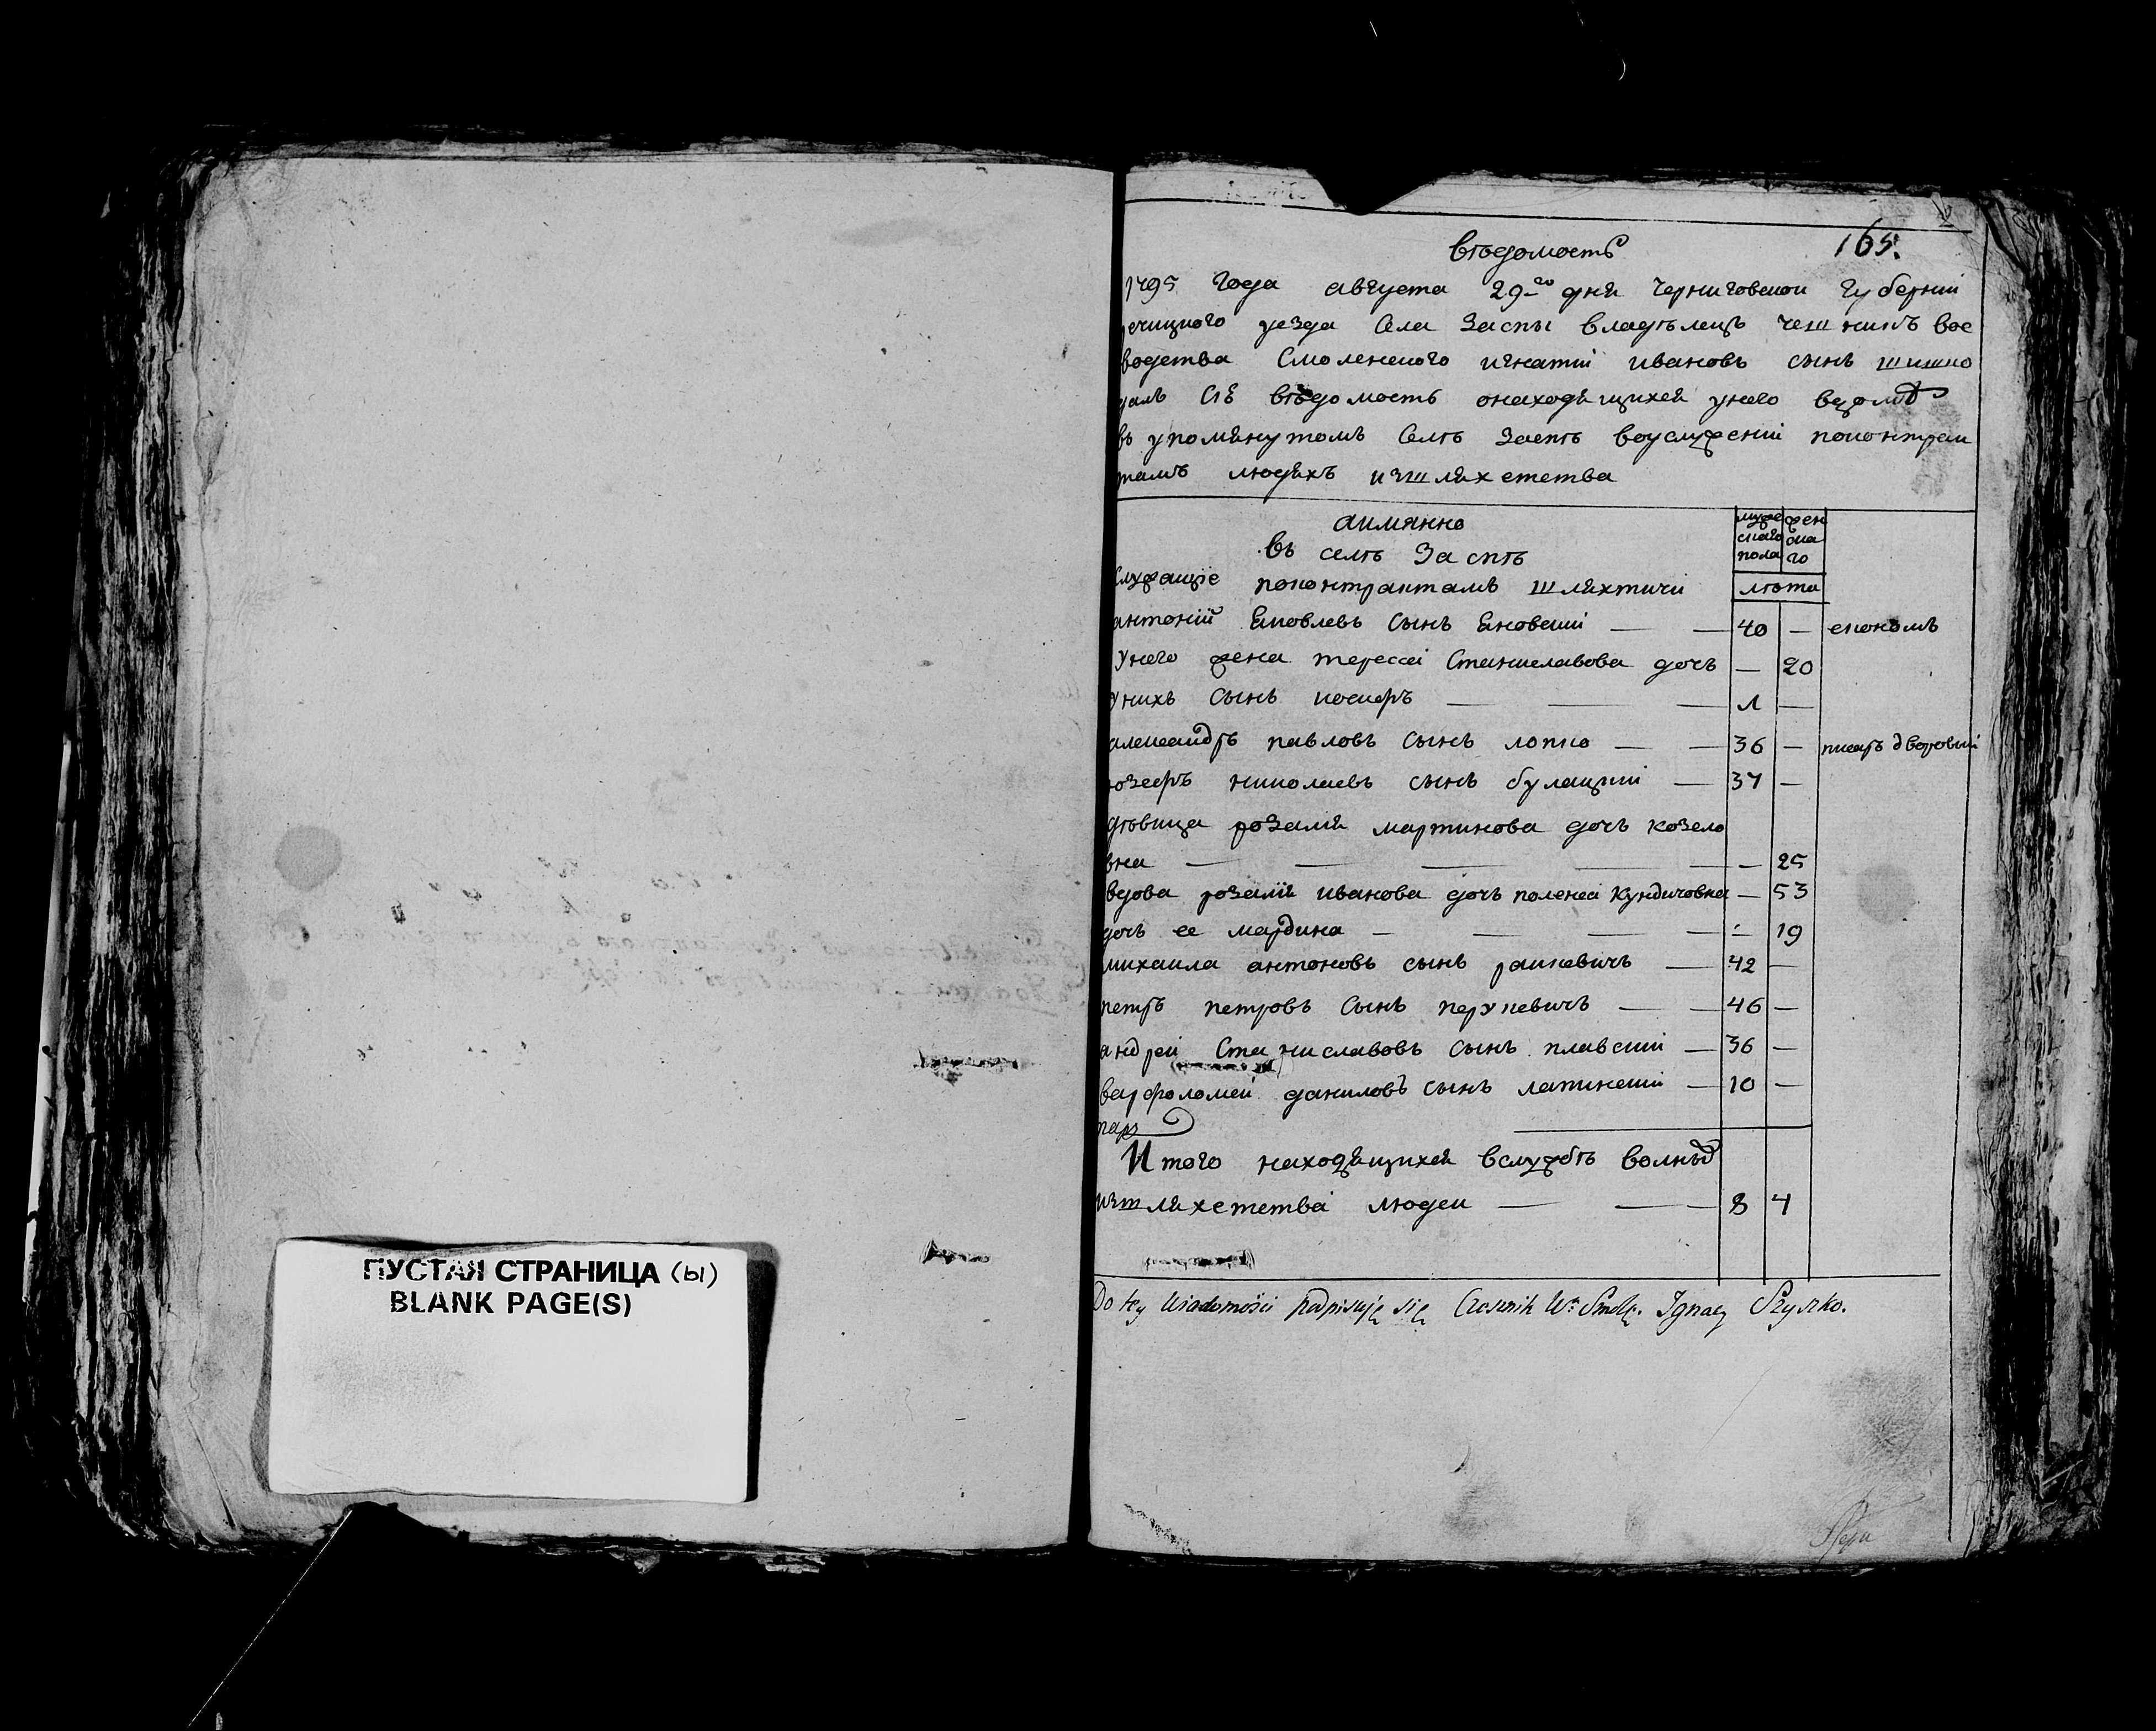 165.
вѣдомость
1795 года августа 29го дня черниговской губерніи
речицкого уезда села Заспы владѣлецъ чешникъ вое
водства Смоленского игнатій ивановъ сынъ шишко
далъ сiѣ вѣдомость онаходящихся унего
въ упомянутомъ селѣ Заспѣ воуслуженіи поконтрак
тамъ людяхъ изшляхетства
аимянно
въ селѣ Заспѣ
муже
скаго
пола
жен
ска
го
служащіе поконтрактамъ шляхтичи
лѣта
антоній яковлевъ сынъ яновскій — — 40 — економъ
унего жена терессa Станиславова дочь — 20
унихъ сынъ иосифъ — — — —
александръ павловъ сынъ лопко — — 36 — писаръ дворовый
юзефъ николаевъ сынъ булацкій — 37 —
дѣвица розалія мартинова дочь козело
вна — — — — — — 25
вдова розалія иванова дочь Кундичовна — 53
дочь ее — — — — — 19
михаила антоновъ сынъ рашкевичъ — 42 —
петръ петровъ сынъ перукевичъ — — 46 —
андрей Станиславовъ сынъ плавский — 36 —
варфоломей даниловъ сынъ латинский — 10 —
Итого находящихся вслужбѣ
изшляхетства людеи — — 8 4
Do tey Wiadomości podpisuję się Czesznik Wa Smoleń. Ignacy Szyszko.
ПУСТАЯ СТРАНИЦА (Ы)
BLANK PAGE(S)